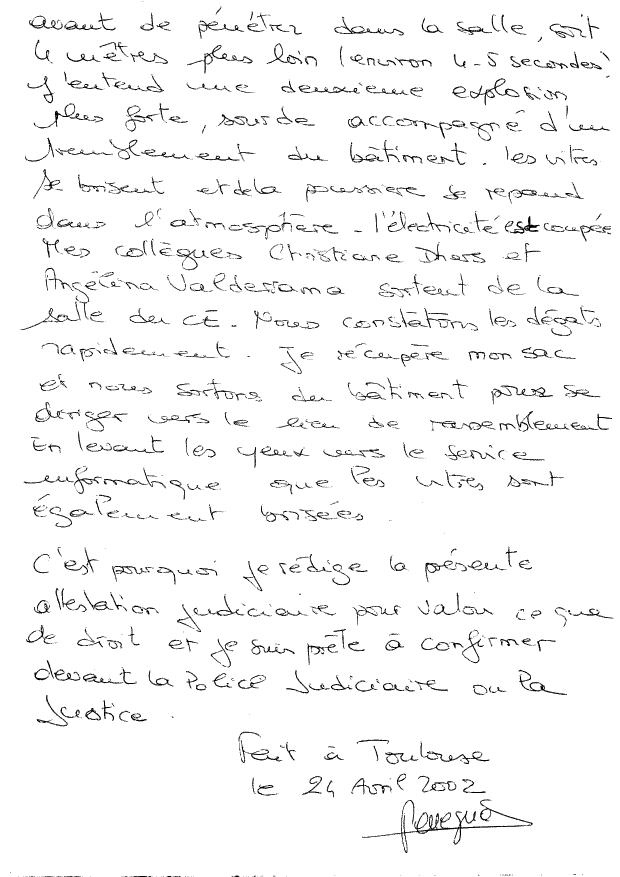 avant de pénétrer dans la salle, soit
4 mètres plus loin (environ 4-5 secondes)
j'entend une deuxième explosion,
plus forte, sourde accompagné d'un
tremblement du bâtiment. les vitres
se brisent et de la poussière se repand
dans l'atmosphère - l'électricité est coupée
Mes collègues Christiane Dhers et
Angélina Valderama sortent de la
salle du CE. Nous constatons les dégats
rapidement. Je récupère mon sac
et nous sortons du bâtiment pour se
diriger vers le lieu de rassemblement
En levant les yeux vers le service
informatique que les vitres sont
également brisées.
C'est pourquoi je rédige la présente
attestation judiciaire pour valoir ce que
de droit et je suis prête à confirmer
devant la Police Judiciaire ou la
Justice.
Fait à Toulouse
le 24 Avril 2002